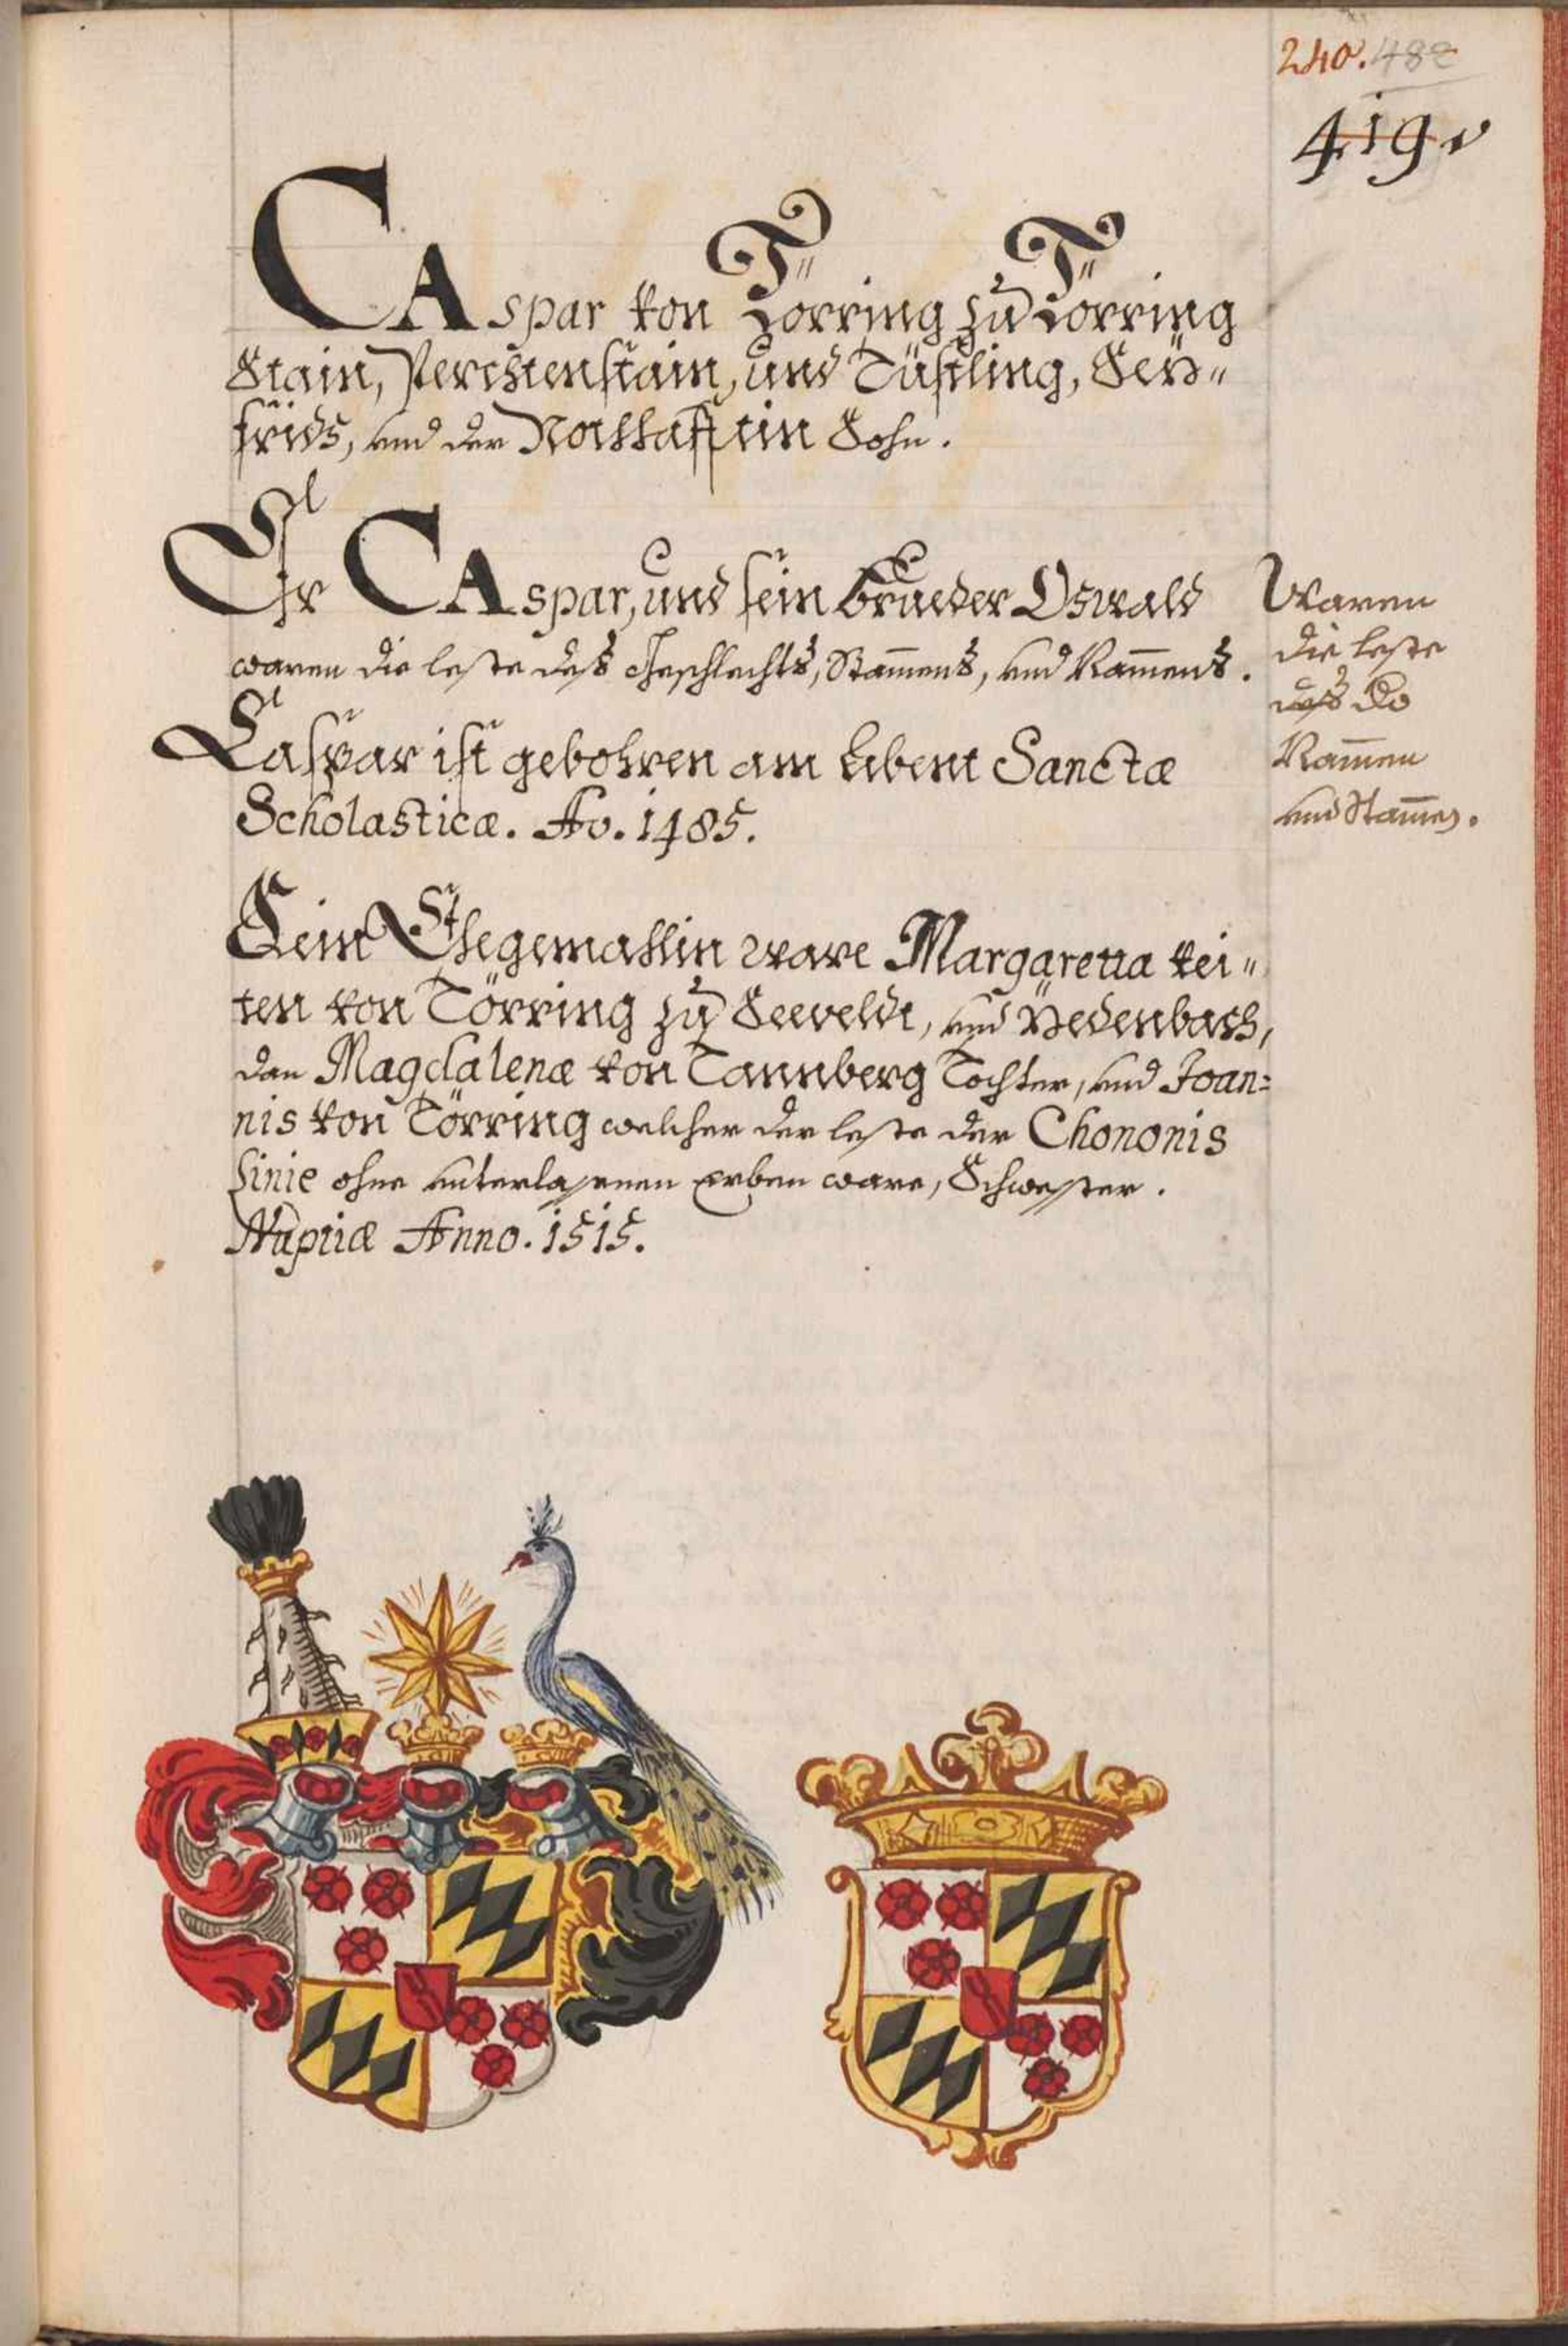 240. 482
419.
CAspar von Törring zu Törring
Stain, Perchtenstain, und Tüsling, Sey„
frids, und der Nothafftin Sohn.
Er CAspar, und sein Brueder Oswald
waren die leste deß Geschlechts, Stam̄ens, und Nam̄ens.
Caspar ist gebohren am Abent Sanctæ
Scholasticæ. Ao. 1485.
Sein Ehegemahlin ware Margaretta Vei„
ten von Törring zu Seeveldt, und
dan Magdalenæ von Tannberg Tochter, und Joan=
nis von Törring welcher der leste der Chononis
Linie ohne unterlassnen Erben ware, Schwester.
Nuptiæ Anno. 1515.
Waren
die leste
deß
Nam̄en
und Stam̄es.